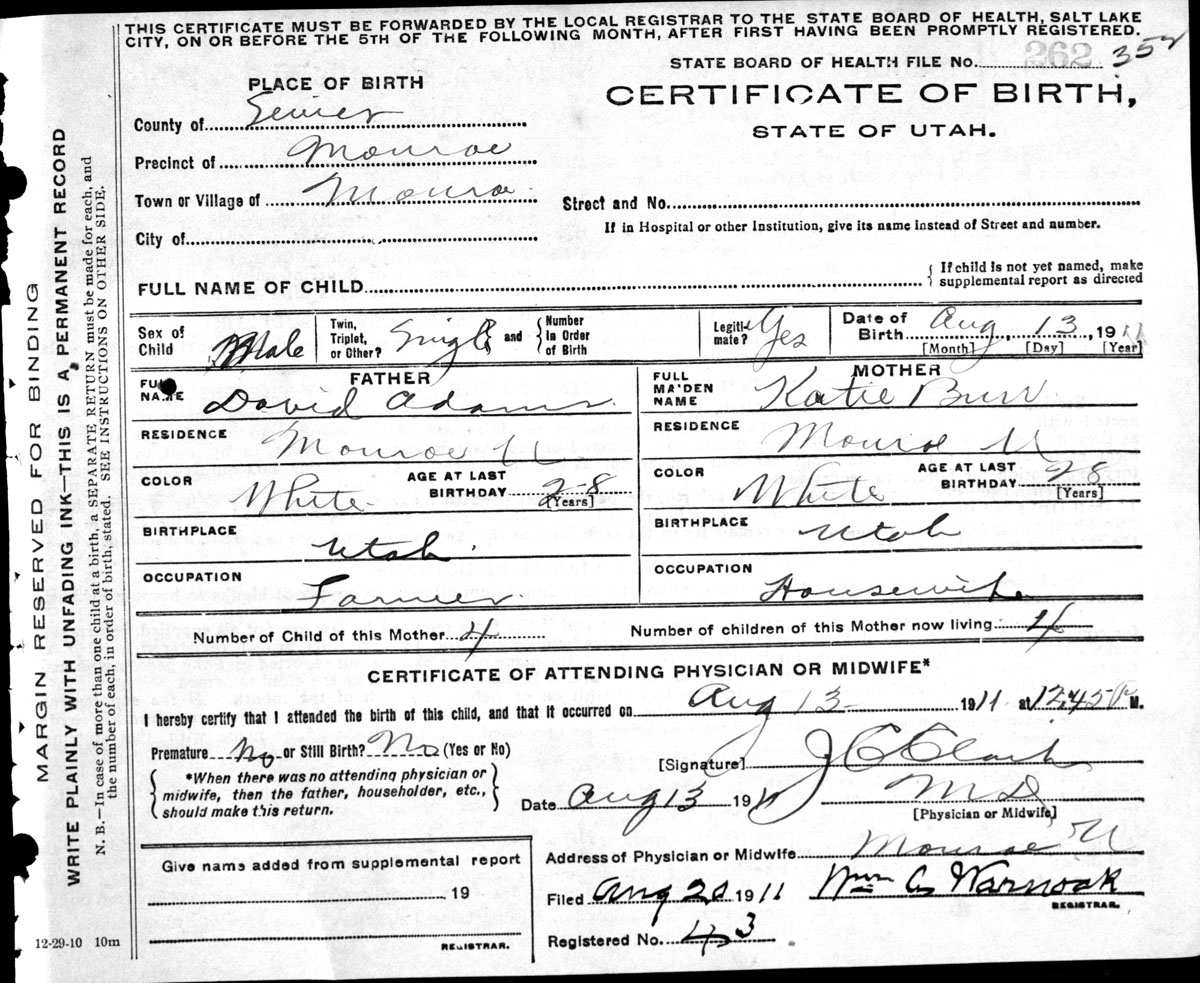 THIS CERTIFICATE MUST BE FORWARDED BY THE LOCAL REGISTRAR TO THE STATE BOARD OF HEALTH, SALT LAKE
CITY, ON OR BEFORE THE 5TH OF THE FOLLOWING MONTH, AFTER FIRST HAVING BEEN PROMPTLY REGISTERED.
STATE BOARD OF HEALTH FILE No. 262 352
PLACE OF BIRTH
CERTIFICATE OF BIRTH,
STATE OF UTAH.
County of Sevier
Precinct of Monroe
Town or Village of Monroe
Street and No.
City of
If in Hospital or other Institution, give its name instead of Street and number.
FULL NAME OF CHILD
{ If child is not yet named, make
supplemental report as directed
Sex of Child Male
Twin, Triplet, or Other? Single and { Number in Order of Birth
Legitimate? Yes
Date of Birth Aug 13, 1911
[Month] [Day] [Year]
FATHER
FULL NAME David Adams
RESIDENCE Monroe U
COLOR White
AGE AT LAST BIRTHDAY 28
[Years]
BIRTHPLACE Utah
OCCUPATION Farmer
MOTHER
FULL MAIDEN NAME Katie Burr
RESIDENCE Monroe U
COLOR White
AGE AT LAST BIRTHDAY 28
[Years]
BIRTHPLACE Utah
OCCUPATION Housewife
Number of Child of this Mother 4
Number of children of this Mother now living 4
CERTIFICATE OF ATTENDING PHYSICIAN OR MIDWIFE*
I hereby certify that I attended the birth of this child, and that it occurred on Aug 13 1911 at 12.45 P M.
Premature No or Still Birth? No (Yes or No)
[Signature] J C Clark
{ *When there was no attending physician or
midwife, then the father, householder, etc.,
should make this return. }
Date Aug 13 1911
M D
[Physician or Midwife]
Give name added from supplemental report
19
REGISTRAR.
Address of Physician or Midwife Monroe U
Filed Aug 20 1911 Wm G Warnock
REGISTRAR.
Registered No. 43
12-29-10 10m
MARGIN RESERVED FOR BINDING
WRITE PLAINLY WITH UNFADING INK—THIS IS A PERMANENT RECORD
N. B.—In case of more than one child at a birth, a SEPARATE RETURN must be made for each, and
the number of each, in order of birth, stated. SEE INSTRUCTIONS ON OTHER SIDE.